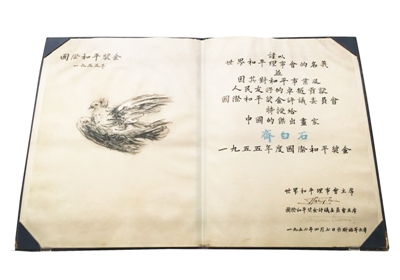 國際和平獎金
一九五五年
謹以
世界和平理事會的名義
並
因其對和平事業及
人民友好的卓越貢獻
國際和平獎金評議委員會
特授給
中國的傑出畫家
齊白石
一九五五年度國際和平獎金
世界和平理事會主席
國際和平獎金評議委員會主席
一九五六年四月七日